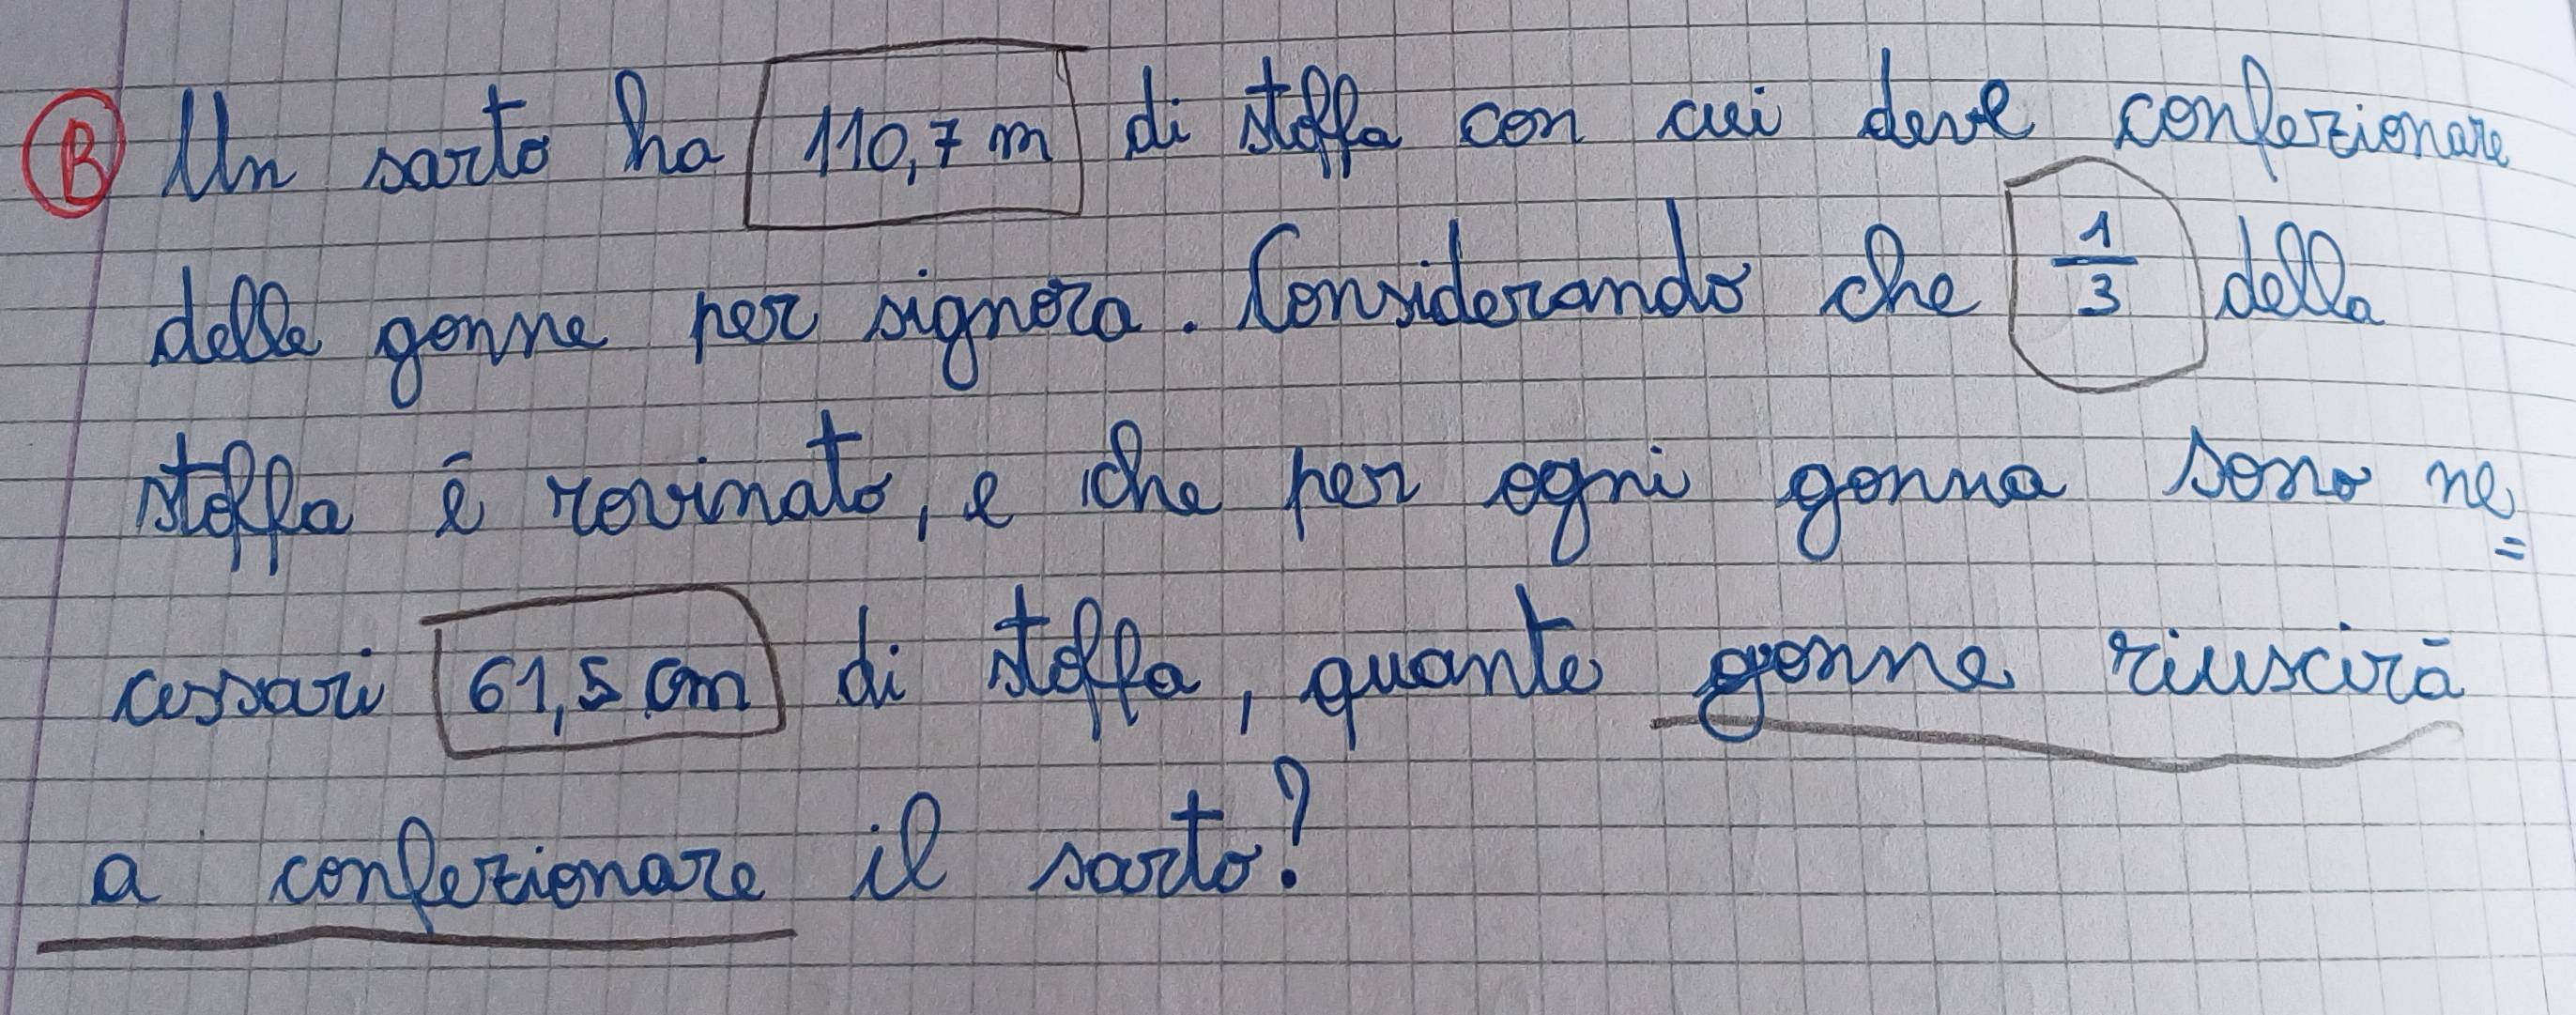 B Un sarto ha 110,7 m di stoffa con cui deve confezionare
delle gonne per signora. Considerando che 1/3 della
stoffa è rovinato, e che per ogni gonna sono ne=
cessari 61,5 cm di stoffa, quante gonne riuscirà
a confezionare il sarto?